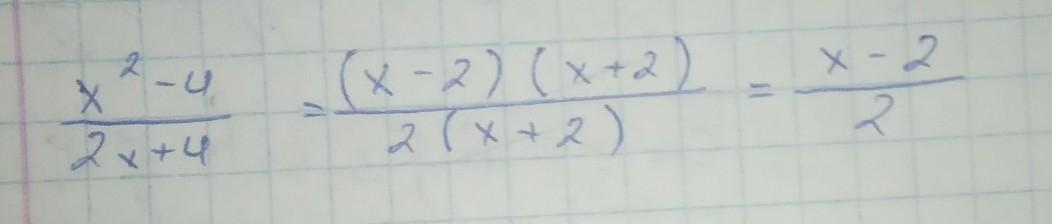 x² - 4 / 2x + 4 = (x - 2)(x + 2) / 2(x + 2) = x - 2 / 2